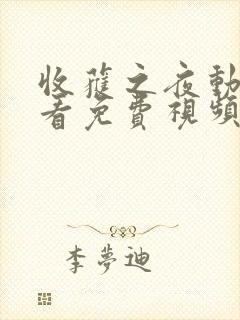 收穫之夜動
看免費視頻
李夢迪